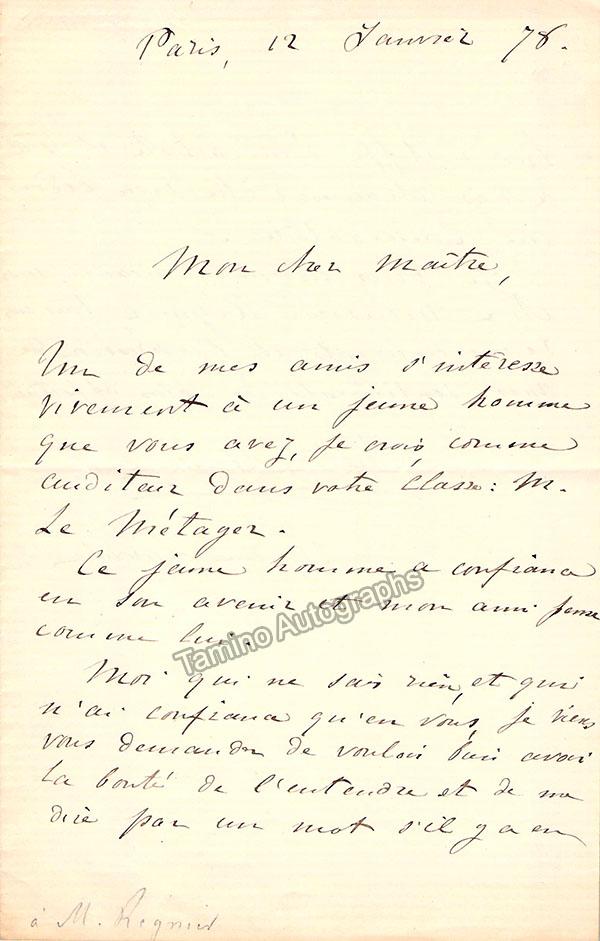 Paris, 12 Janvier 78.
Mon cher maître,
Un de mes amis s'intéresse
vivement à un jeune homme
que vous avez, je crois, comme
auditeur dans votre classe : M.
Le Métayer.
Ce jeune homme a confiance
en son avenir et mon ami pense
comme lui.
Tamino Autographs
Moi qui ne sais rien, et qui
n'ai confiance qu'en vous, je viens
vous demander de vouloir bien avoir
la bonté de l'entendre et de me
dire par un mot s'il y a en
à M. Regnier